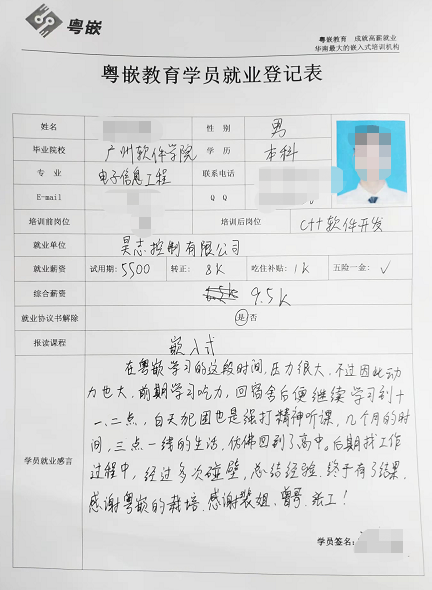 粤嵌
粤嵌教育 成就高薪就业
华南最大的嵌入式培训机构
粤嵌教育学员就业登记表
姓名 性别 男
毕业院校 广州软件学院 学历 本科
专业 电子信息工程 联系电话
E-mail QQ
培训前岗位 培训后岗位 C++软件开发
就业单位 昊志控制有限公司
就业薪资 试用期：5500 转正：8K 吃住补贴：1K 五险一金：✓
综合薪资 9.5K
就业协议书解除 是 否
报读课程 嵌入式
学员就业感言
在粤嵌学习的这段时间，压力很大，不过因此动
力也大，前期学习吃力，回宿舍后便继续学习到十
一、二点，白天犯困也是强打精神听课，几个月的时
间，三点一线的生活，仿佛回到了高中。后期找工作
过程中，经过多次碰壁，总结经验，终于有了结果，
感谢粤嵌的栽培，感谢裴姐、曾哥、张工！
学员签名：